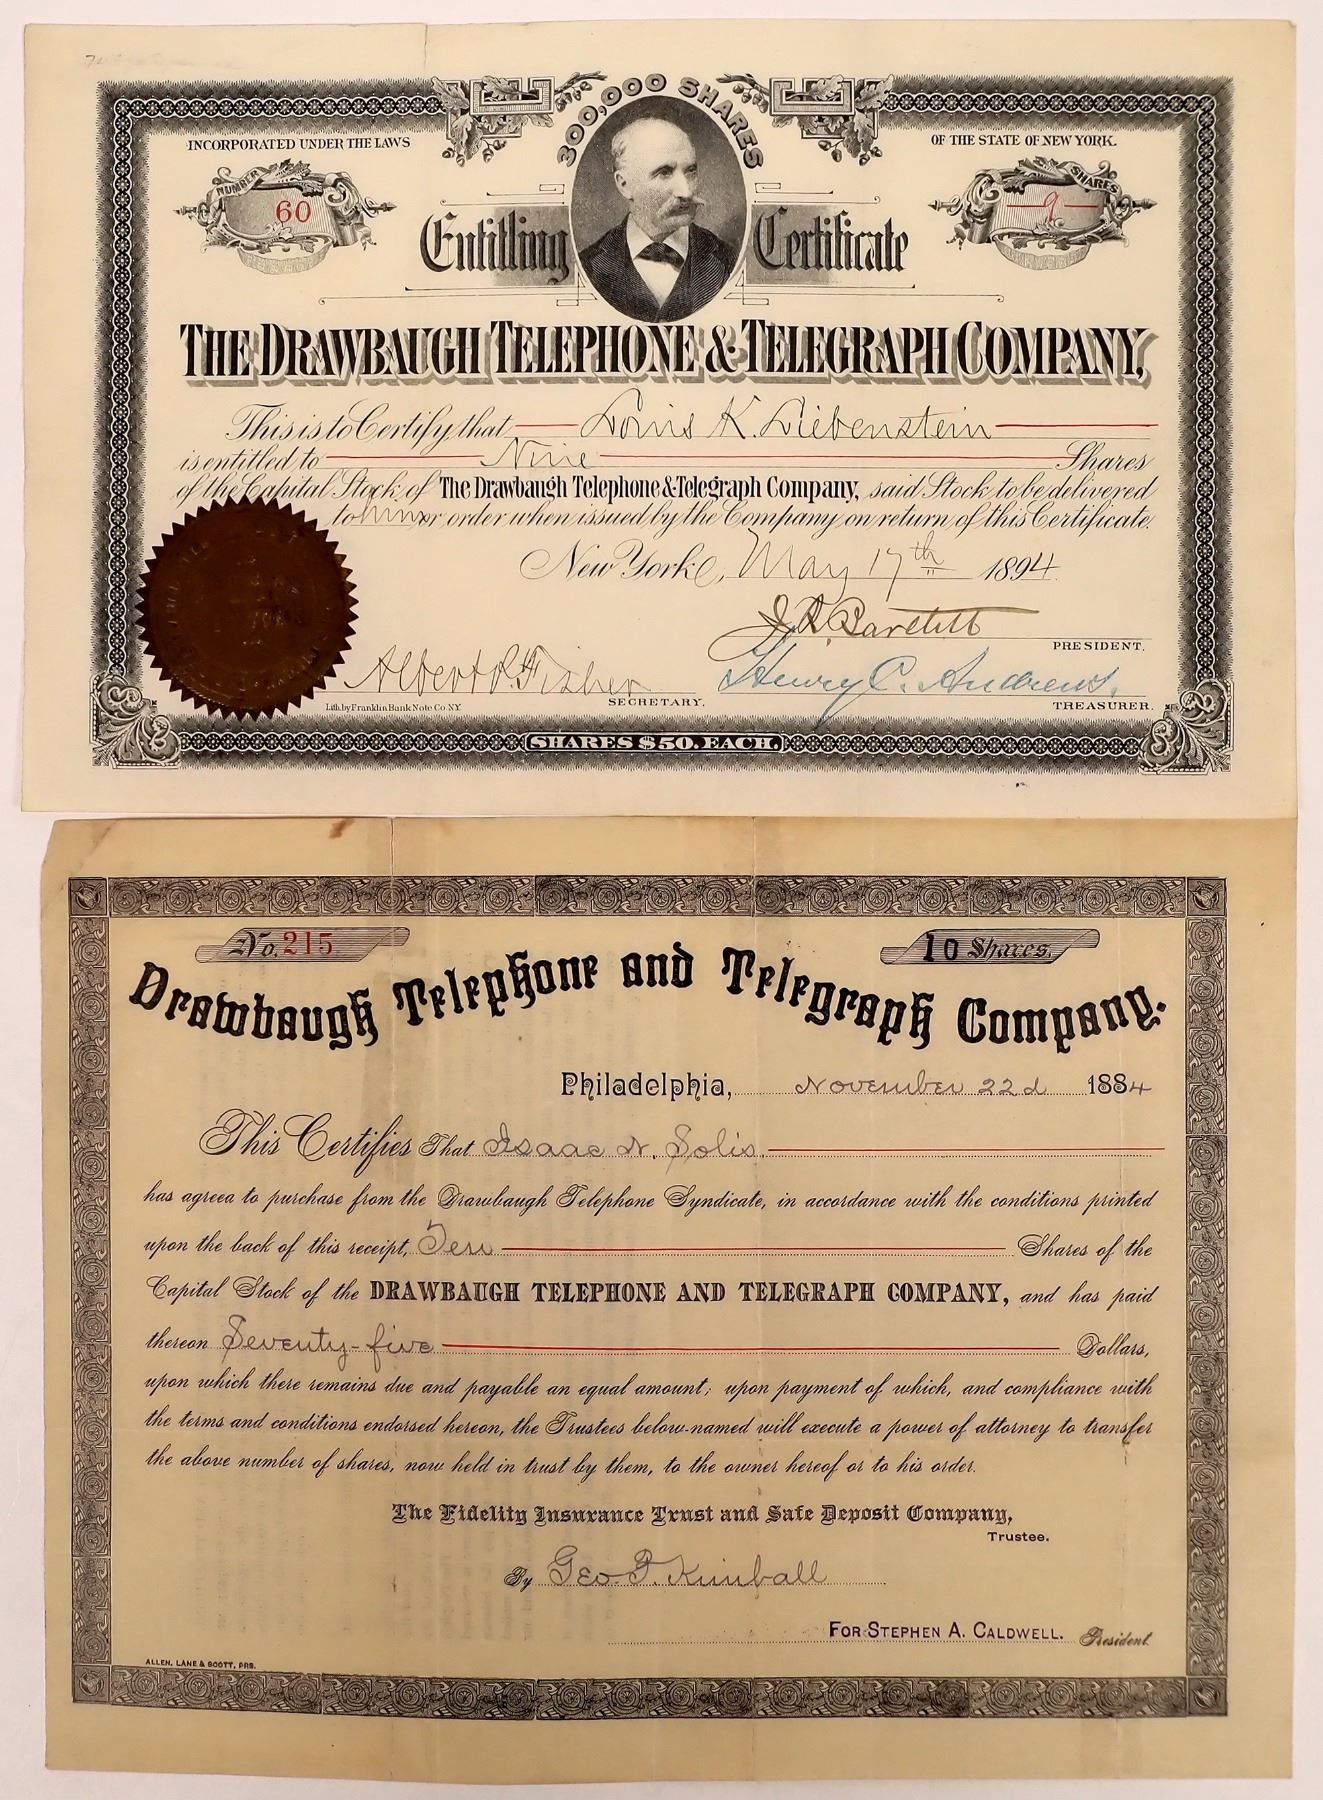 300,000 SHARES
INCORPORATED UNDER THE LAWS
OF THE STATE OF NEW YORK.
NUMBER
60
SHARES
9
Entitling Certificate
THE DRAWBAUGH TELEPHONE & TELEGRAPH COMPANY,
This is to Certify that Louis K. Liebenstein
is entitled to Nine Shares
of the Capital Stock of The Drawbaugh Telephone & Telegraph Company, said Stock to be delivered
to him or order when issued by the Company on return of this Certificate.
New York, May 17th 1894
J. R. Bartlett
PRESIDENT.
Albert R. Fisher
SECRETARY.
Henry C. Andrews.
TREASURER.
Lith. by Franklin Bank Note Co. N.Y.
SHARES $50. EACH.
No. 215
10 Shares.
Drawbaugh Telephone and Telegraph Company.
Philadelphia, November 22d 1884
This Certifies That Isaac N. Solis.
has agreed to purchase from the Drawbaugh Telephone Syndicate, in accordance with the conditions printed
upon the back of this receipt, Ten Shares of the
Capital Stock of the DRAWBAUGH TELEPHONE AND TELEGRAPH COMPANY, and has paid
thereon Seventy-five Dollars,
upon which there remains due and payable an equal amount; upon payment of which, and compliance with
the terms and conditions endorsed hereon, the Trustees below-named will execute a power of attorney to transfer
the above number of shares, now held in trust by them, to the owner hereof or to his order.
The Fidelity Insurance Trust and Safe Deposit Company,
Trustee.
By Geo. F. Kimball
FOR STEPHEN A. CALDWELL. President.
ALLEN, LANE & SCOTT, PRS.